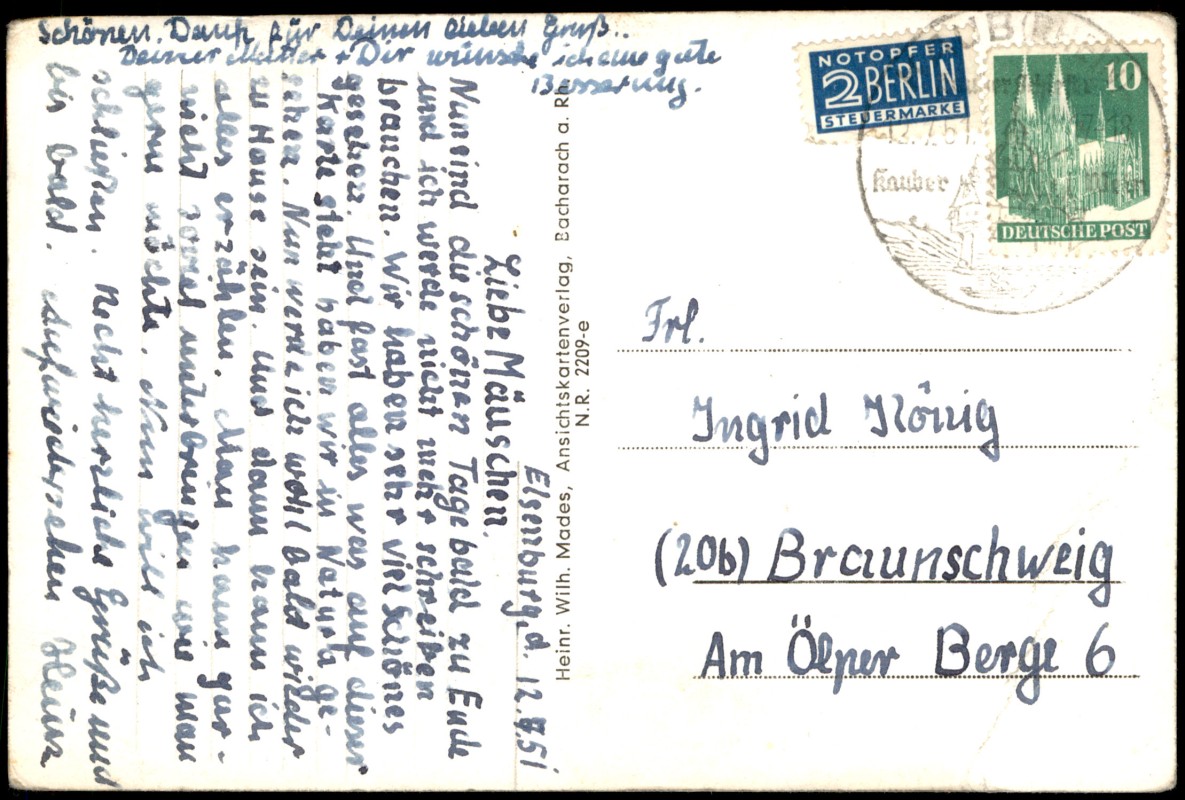 Schönen Dank für Deinen lieben Gruß..
Deiner Mutter + Dir wünsche ich eine gute
Besserung.
Elsenburg, d. 12.7.51
Liebe Mäuschen.
Nun sind die schönen Tage bald zu Ende
und ich werde nicht mehr schreiben
brauchen. Wir haben sehr viel Schönes
gesehen. Und fast alles was auf dieser
Karte steht haben wir in Natura ge-
sehen. Nun werde ich wohl bald wieder
zu Hause sein. Und dann kann ich
alles erzählen. Man kann gar-
nicht soviel unterbringen wie man
gerne möchte. Nun will ich
schließen. Recht herzliche Grüße und
bis bald. Aufwiedersehen Heinz
Heinr. Wilh. Mades, Ansichtskartenverlag, Bacharach a. Rh.
N.R. 2209-e
NOTOPFER
2 BERLIN
STEUERMARKE
10
DEUTSCHE POST
17-18
Kauber
Frl.
Ingrid König
(20b) Braunschweig
Am Ölper Berge 6